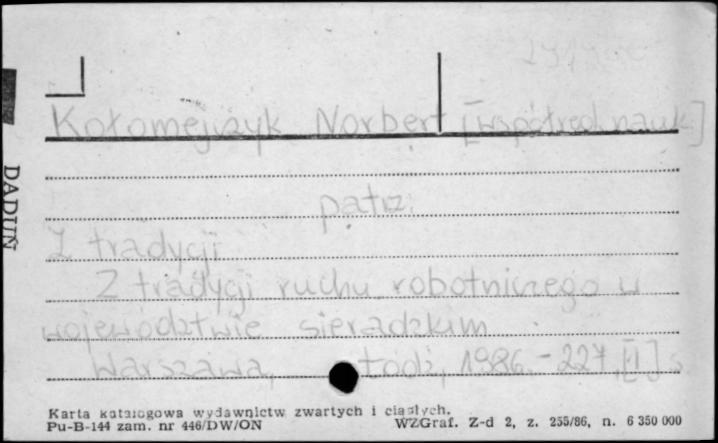 Kołomejczyk Norbert [współred. nauk.]
patrz:
Z tradycji
Z tradycji ruchu robotniczego w
województwie sieradzkim
Warszawa, Łódź, 1986. - 227, [1] s.
DADUŃ
Karta katalogowa wydawnictw zwartych i ciągłych.
Pu-B-144 zam. nr 446/DW/ON WZGraf. Z-d 2, z. 255/86, n. 6 350 000